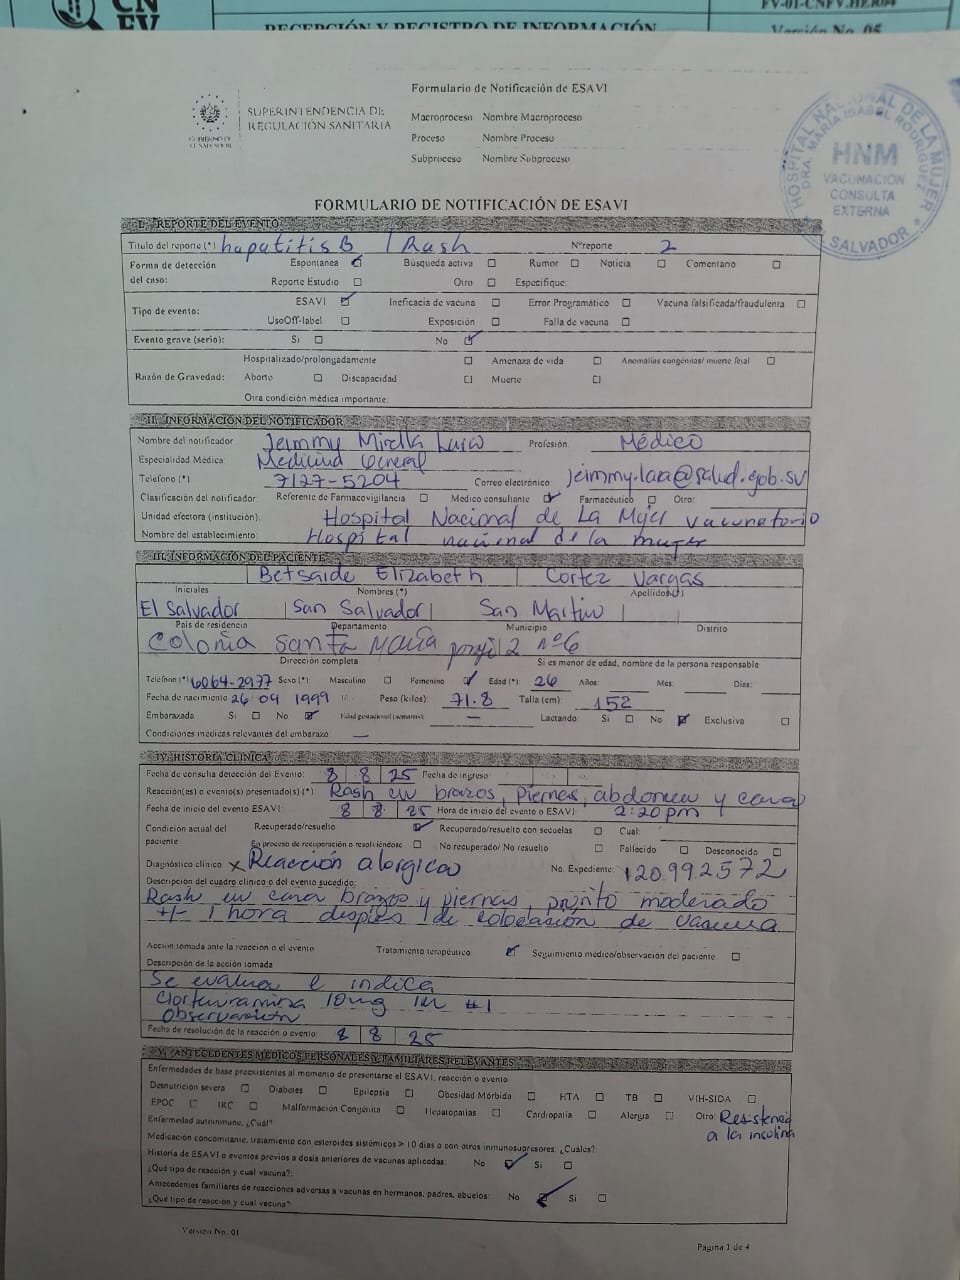 CN
FV
FV-01-CNFV.HER04
RECEPCIÓN Y REGISTRO DE INFORMACIÓN
Versión No. 05
SUPERINTENDENCIA DE
REGULACIÓN SANITARIA
GOBIERNO DE
EL SALVADOR
Formulario de Notificación de ESAVI
Macroproceso Nombre Macroproceso
Proceso Nombre Proceso
Subproceso Nombre Subproceso
HOSPITAL NACIONAL DE LA MUJER
DRA. MARIA ISABEL RODRIGUEZ
HNM
VACUNACION
CONSULTA
EXTERNA
SALVADOR
FORMULARIO DE NOTIFICACIÓN DE ESAVI
I. REPORTE DEL EVENTO
Titulo del reporte (*) hapatitis B / Rash N°reporte 2
Forma de detección del caso: Espontanea Búsqueda activa Rumor Noticia Comentario
Reporte Estudio Otro Especifique:
Tipo de evento: ESAVI Ineficacia de vacuna Error Programático Vacuna falsificada/fraudulenta
UsoOff-label Exposición Falla de vacuna
Evento grave (serio): Si No
Razón de Gravedad: Hospitalizado/prolongadamente Amenaza de vida Anomalías congénitas/ muerte fetal
Aborto Discapacidad Muerte
Otra condición médica importante:
II. INFORMACIÓN DEL NOTIFICADOR
Nombre del notificador Jeimmy Mirella Lara Profesión Médico
Especialidad Médica: Medicina General
Teléfono (*) 7127-5204 Correo electrónico jeimmy.lara@salud.gob.sv
Clasificación del notificador: Referente de Farmacovigilancia Medico consultante Farmacéutico Otro:
Unidad efectora (institución). Hospital Nacional de La Mujer vacunatorio
Nombre del establecimiento Hospital nacional de la mujer
III. INFORMACIÓN DEL PACIENTE
Betsaide Elizabeth Cortez Vargas
Iniciales Nombres (*) Apellidos(*)
El Salvador San Salvador San Martin
País de residencia Departamento Municipio Distrito
Colonia Santa Maria 2 n°6
Dirección completa Si es menor de edad, nombre de la persona responsable
Teléfono (*) 6064-2977 Sexo (*): Masculino Femenino Edad (*): 26 Años: Mes: Días:
Fecha de nacimiento 26 09 1999 Peso (kilos): 71.8 Talla (cm): 152
Embarazada Si No Edad gestacional (semanas): — Lactando Si No Exclusiva
Condiciones médicas relevantes del embarazo —
IV. HISTORIA CLINICA
Fecha de consulta detección del Evento: 8 8 25 Fecha de ingreso
Reacción(es) o evento(s) presentado(s) (*) Rash en brazos, piernas, abdomen y cara
Fecha de inicio del evento ESAVI: 8 8 25 Hora de inicio del evento o ESAVI 2:20 pm
Condición actual del paciente: Recuperado/resuelto Recuperado/resuelto con secuelas Cual:
En proceso de recuperación o resolviéndose No recuperado/ No resuelto Fallecido Desconocido
Diagnóstico clínico x Reacción alergica No. Expediente: 120992572
Descripción del cuadro clínico o del evento sucedido:
Rash en cara brazos y piernas, prurito moderado
+/- 1 hora despues de colocación de vacuna
Acción tomada ante la reacción o el evento Tratamiento terapéutico Seguimiento médico/observación del paciente
Descripción de la acción tomada
Se evalua e indica
Clorfeniramina 10mg IM #1
Observación
Fecha de resolución de la reacción o evento: 8 8 25
V. ANTECEDENTES MEDICOS PERSONALES Y FAMILIARES RELEVANTES
Enfermedades de base preexistentes al momento de presentarse el ESAVI, reacción o evento
Desnutrición severa Diabetes Epilepsia Obesidad Mórbida HTA TB VIH-SIDA
EPOC IRC Malformación Congénita Hepatopatías Cardiopatía Alergia Otro: Resistencia
a la insulina
Enfermedad autoinmune. ¿Cuál?
Medicación concomitante, tratamiento con esteroides sistémicos > 10 días o con otros inmunosupresores: ¿Cuáles?
Historia de ESAVI o eventos previos a dosis anteriores de vacunas aplicadas: No Si
¿Qué tipo de reacción y cual vacuna?:
Antecedentes familiares de reacciones adversas a vacunas en hermanos, padres, abuelos: No Si
¿Qué tipo de reacción y cual vacuna?:
Version No. 01
Página 1 de 4